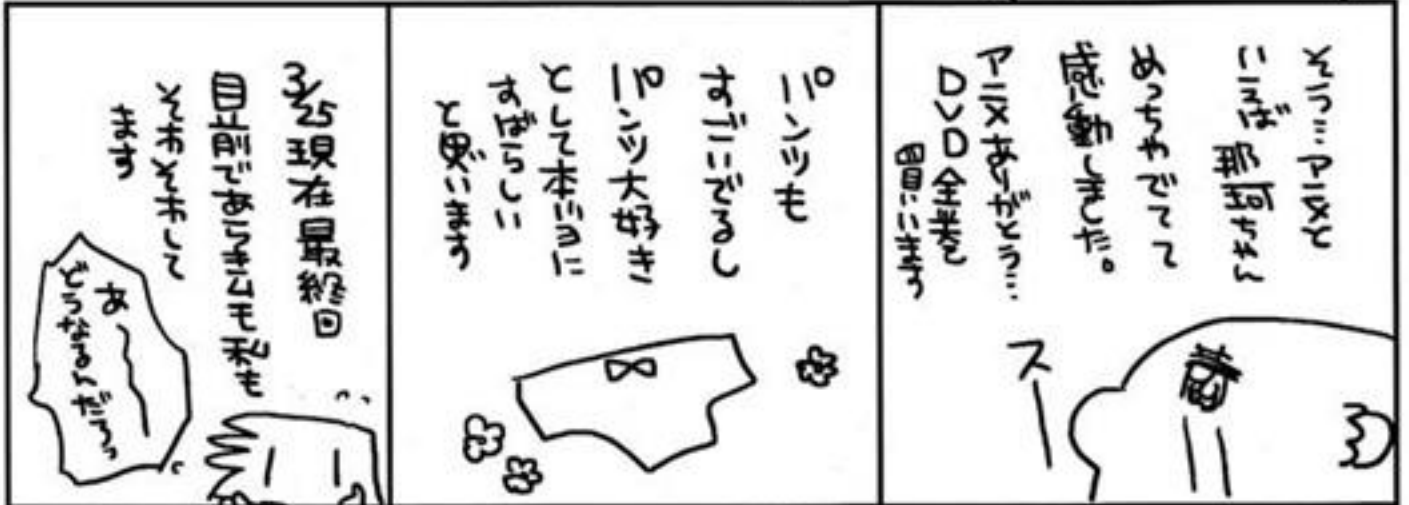 そう…アニメと
いえば那珂ちゃん
めっちゃでてて
感動しました。
アニメありがとう…
DVD全巻
買います
スー
パンツも
すごいでるし
パンツ大好き
として本当に
すばらしい
と思います
3/25現在最終回
目前であ
も私も
そわそわして
ます
あー
どうなるんだろう